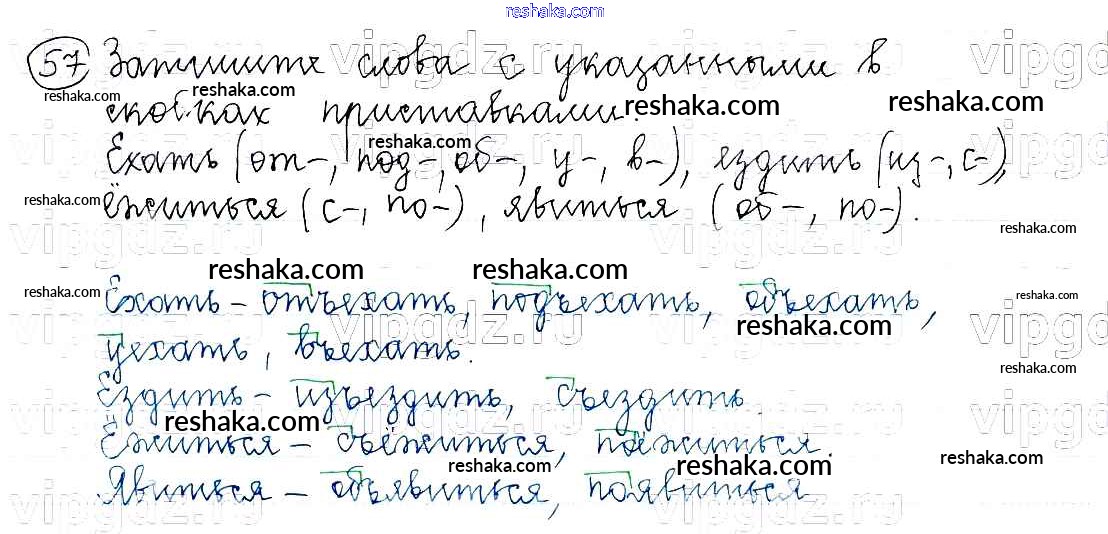 reshaka.com
57 Запишите слова с указанными в
скобках приставками.
Ехать (от-, под-, об-, у-, в-), ездить (из-, с-),
ёжиться (с-, по-), явиться (об-, по-).
Ехать - отъехать, подъехать, объехать,
уехать, въехать.
Ездить - изъездить, съездить.
Ёжиться - съёжиться, поёжиться.
Явиться - объявиться, появиться